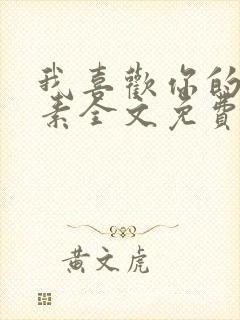 我喜歡你的
素全文免費
黃文虎